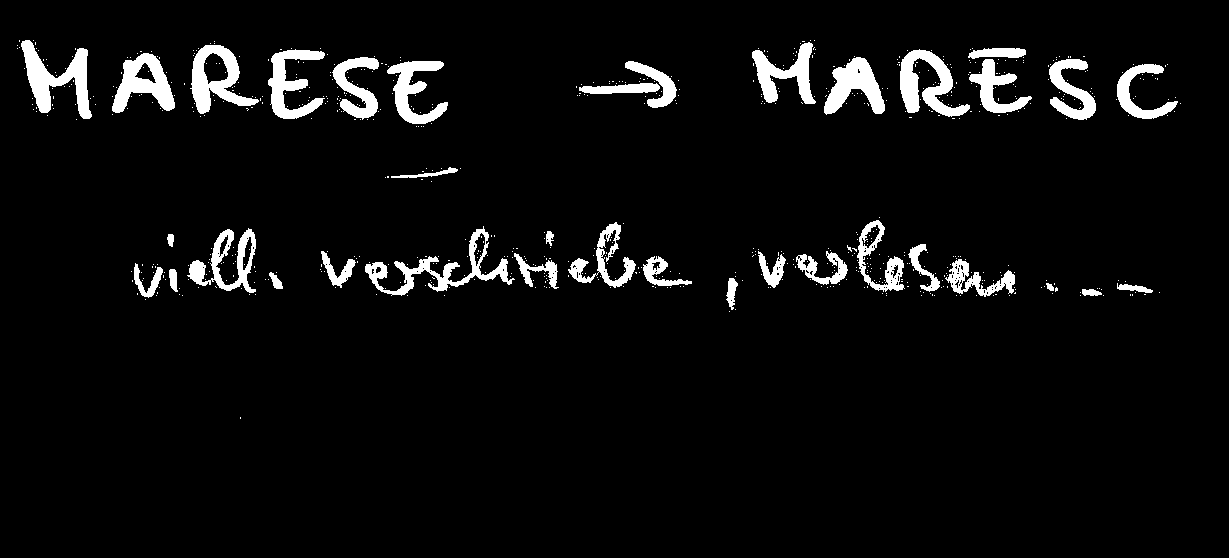 MARESE → MARESC
viell. verschriebe, verlesen ...